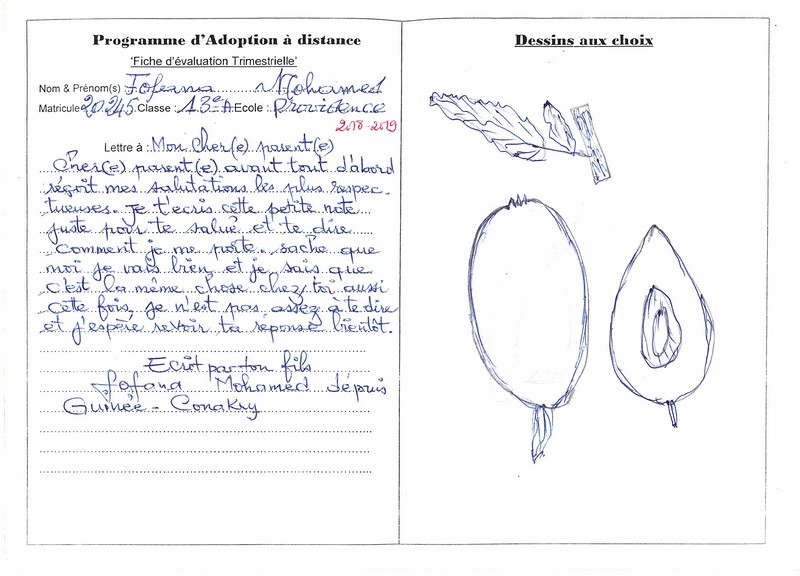 Programme d'Adoption à distance
'Fiche d'évaluation Trimestrielle'
Nom & Prénom(s) Fofana Mohamed
Matricule 20.245 Classe : 13e A Ecole : Providence
2018-2019
Lettre à : Mon Cher(e) parent(e)
Cher(e) parent(e) avant tout d'abord
réçoit mes salutations les plus respec-
tueuses. Je t'ecris cette petite note
juste pour te salué et te dire
comment je me porte. sache que
moi je vais bien et je sais que
c'est la même chose chez toi aussi
cette fois, je n'est pas assez à te dire
et j'espère revoir ta reponse bientôt.
Ecrit par ton fils
Fofana Mohamed dépuis
Guinée - Conakry
Dessins aux choix